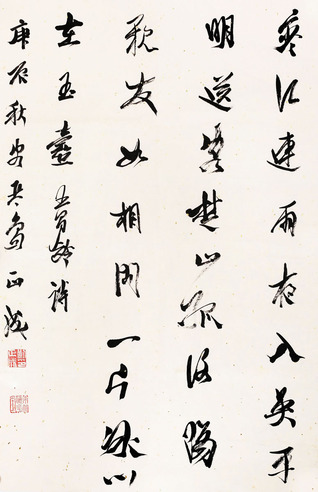 寒江連雨夜入吳平
明送客楚山孤洛陽
親友如相問一片冰心
在玉壺王昌齡詩
庚辰秋